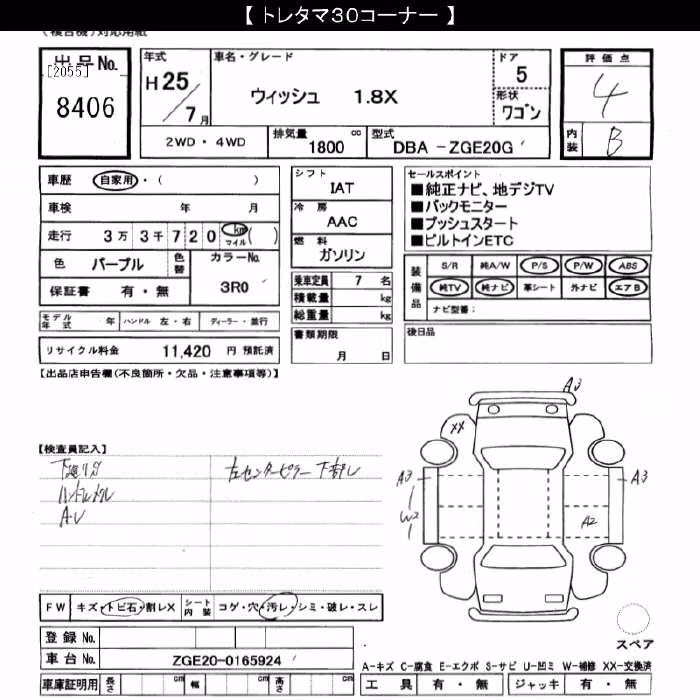 【 トレタマ30コーナー 】
(複合機)対応用紙
出品No.
[2055]
8406
年式
H 25 / 7 月
車名・グレード
ウィッシュ 1.8X
ドア
5
形状
ワゴン
評価点
4
内装
B
2WD・4WD
排気量 cc
1800
型式
DBA -ZGE20G
車歴 自家用・( )
車検 年 月
走行 3万 3千 7 2 0 km マイル ( )
色 パープル 色替
カラーNo.
3R0
保証書 有・無
モデル年式 年 ハンドル 左・右 ディーラー・並行
リサイクル料金 11,420 円 預託済
シフト
IAT
冷房
AAC
燃料
ガソリン
乗車定員 7 名
積載量 kg
総重量 kg
書類期限
月 日
セールスポイント
■純正ナビ、地デジTV
■バックモニター
■プッシュスタート
■ビルトインETC
装備品
S/R 純A/W P/S P/W ABS
純TV 純ナビ 革シート 外ナビ エアB
ナビ型番:
後日品
【出品店申告欄(不良箇所・欠品・注意事項等)】
【検査員記入】
左センターピラー下部
A3
XX
A3
A3
W2
A2
FW キズ・トビ石・割レX シート内装 コゲ・穴・汚レ・シミ・破レ・スレ
登録No.
車台No. ZGE20-0165924
車庫証明用 長さ cm 幅 cm 高さ cm
スペア
A-キズ C-腐食 E-エクボ S-サビ U-凹ミ W-補修 XX-交換済
工具 有・無 ジャッキ 有・無